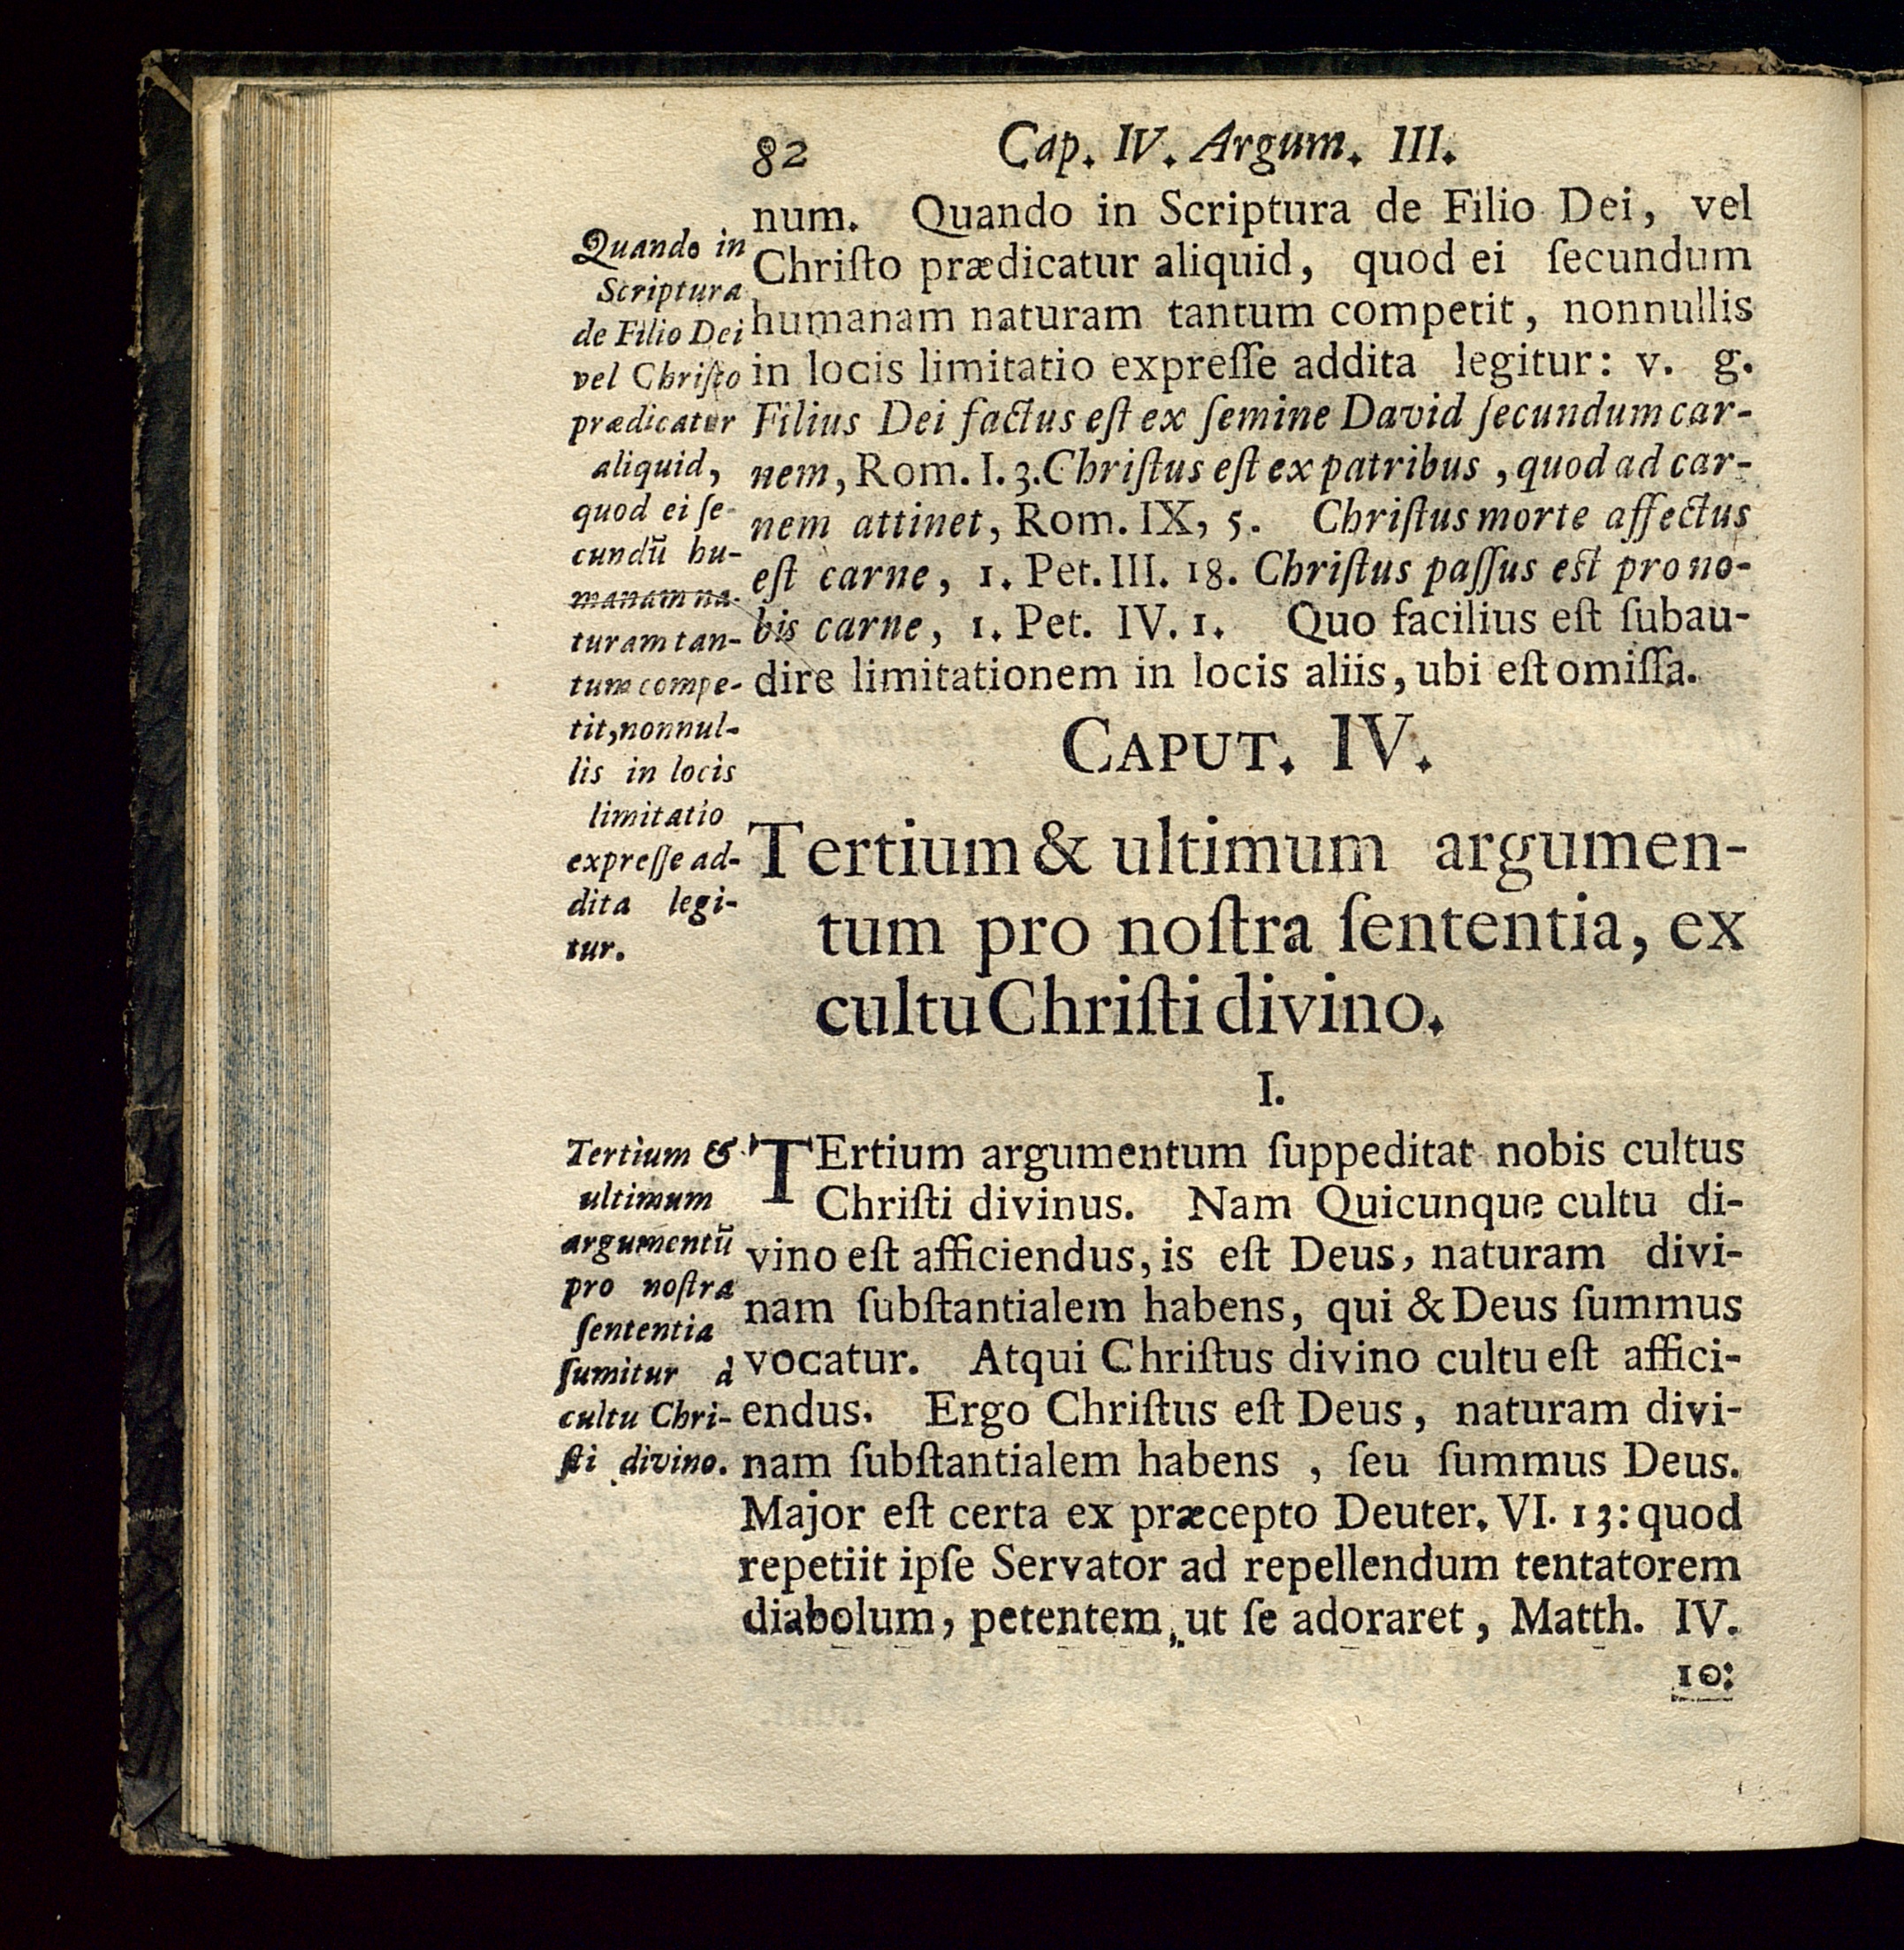 82 Cap. IV. Argum. III.
num. Quando in Scriptura de Filio Dei, vel
Chriſto prædicatur aliquid, quod ei ſecundum
humanam naturam tantum competit, nonnullis
in locis limitatio expreſſe addita legitur: v. g.
Filius Dei factus eſt ex ſemine David ſecundum car-
nem, Rom. I. 3. Chriſtus eſt ex patribus, quod ad car-
nem attinet, Rom. IX, 5. Chriſtus morte affectus
eſt carne, 1. Pet. III. 18. Chriſtus paſſus est pro no-
bis carne, 1. Pet. IV. 1. Quo facilius eſt ſubau-
dire limitationem in locis aliis, ubi eſt omiſſa.
Quando in
Scriptura
de Filio Dei
vel Chriſto
prædicatur
aliquid,
quod ei ſe-
cundū hu-
manam na-
turam tan-
tum compe-
tit, nonnul-
lis in locis
limitatio
expreſſe ad-
dita legi-
tur.
CAPUT. IV.
Tertium & ultimum argumen-
tum pro noſtra ſententia, ex
cultu Chriſti divino.
I.
TErtium argumentum ſuppeditat nobis cultus
Chriſti divinus. Nam Quicunque cultu di-
vino eſt afficiendus, is eſt Deus, naturam divi-
nam ſubſtantialem habens, qui & Deus ſummus
vocatur. Atqui Chriſtus divino cultu eſt affici-
endus. Ergo Chriſtus eſt Deus, naturam divi-
nam ſubſtantialem habens, ſeu ſummus Deus.
Major eſt certa ex præcepto Deuter. VI. 13: quod
repetiit ipſe Servator ad repellendum tentatorem
diabolum, petentem, ut ſe adoraret, Matth. IV.
Tertium &
ultimum
argumentū
pro noſtra
ſententia
ſumitur à
cultu Chri-
ſti divino.
10: